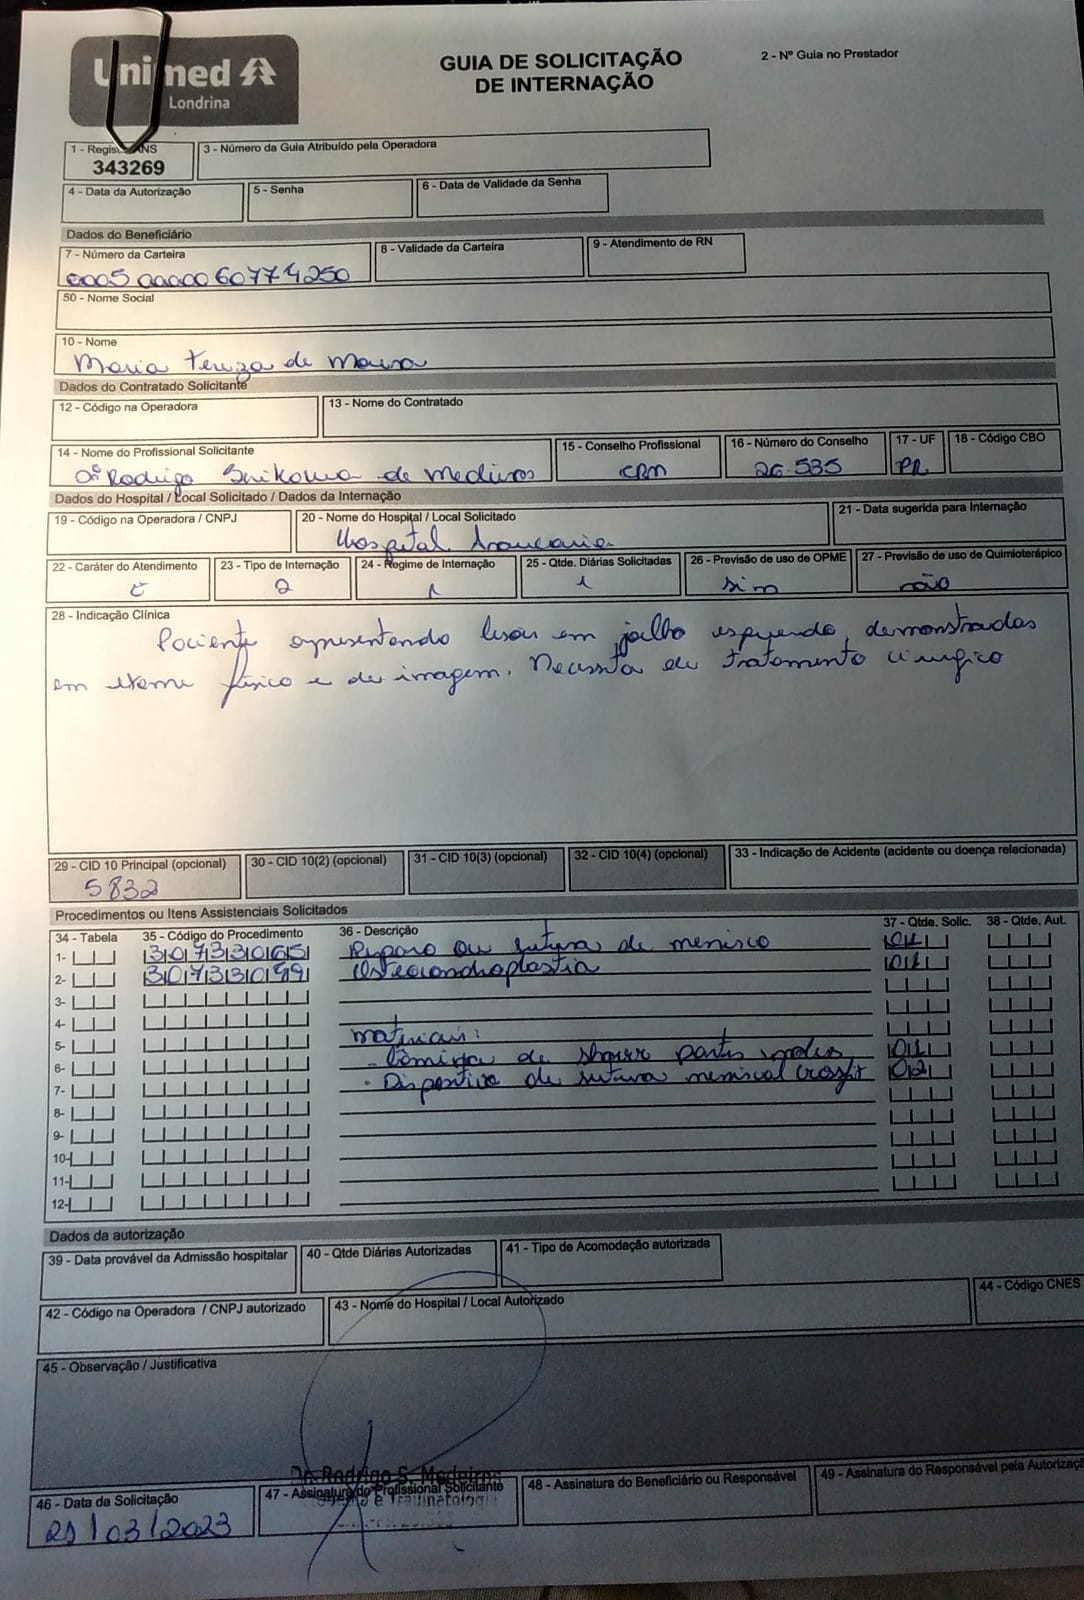 Unimed
Londrina
GUIA DE SOLICITAÇÃO
DE INTERNAÇÃO
2 - Nº Guia no Prestador
1 - Regis ANS
343269
3 - Número da Guia Atribuído pela Operadora
4 - Data da Autorização
5 - Senha
6 - Data de Validade da Senha
Dados do Beneficiário
7 - Número da Carteira
0005 00000 60774250
8 - Validade da Carteira
9 - Atendimento de RN
50 - Nome Social
10 - Nome
Maria Tereza de Moura
Dados do Contratado Solicitante
12 - Código na Operadora
13 - Nome do Contratado
14 - Nome do Profissional Solicitante
Dr Rodrigo de Medeiros
15 - Conselho Profissional
CRM
16 - Número do Conselho
26.535
17 - UF
PR
18 - Código CBO
Dados do Hospital / Local Solicitado / Dados da Internação
19 - Código na Operadora / CNPJ
20 - Nome do Hospital / Local Solicitado
Hospital Araucaria
21 - Data sugerida para Internação
22 - Caráter do Atendimento
E
23 - Tipo de Internação
2
24 - Regime de Internação
1
25 - Qtde. Diárias Solicitadas
1
26 - Previsão de uso de OPME
sim
27 - Previsão de uso de Quimioterápico
não
28 - Indicação Clínica
Paciente apresentando lesão em joelho esquerdo, demonstradas
em exame físico e de imagem. Necessita de tratamento cirurgico
29 - CID 10 Principal (opcional)
S832
30 - CID 10(2) (opcional)
31 - CID 10(3) (opcional)
32 - CID 10(4) (opcional)
33 - Indicação de Acidente (acidente ou doença relacionada)
Procedimentos ou Itens Assistenciais Solicitados
34 - Tabela
35 - Código do Procedimento
36 - Descrição
37 - Qtde. Solic.
38 - Qtde. Aut.
1- 30733065 Reparo ou sutura de menisco 01
2- 30733049 Osteocondroplastia 01
3-
4-
5- materiais:
6- - Lâmina de shaver partes moles 01
7- - Dispositivo de sutura meniscal crossfit 02
8-
9-
10-
11-
12-
Dados da autorização
39 - Data provável da Admissão hospitalar
40 - Qtde Diárias Autorizadas
41 - Tipo de Acomodação autorizada
42 - Código na Operadora / CNPJ autorizado
43 - Nome do Hospital / Local Autorizado
44 - Código CNES
45 - Observação / Justificativa
Dr. Rodrigo S. Medeiros
46 - Data da Solicitação
21/03/2023
47 - Assinatura do Profissional Solicitante
e Traumatologia
48 - Assinatura do Beneficiário ou Responsável
49 - Assinatura do Responsável pela Autorizaç